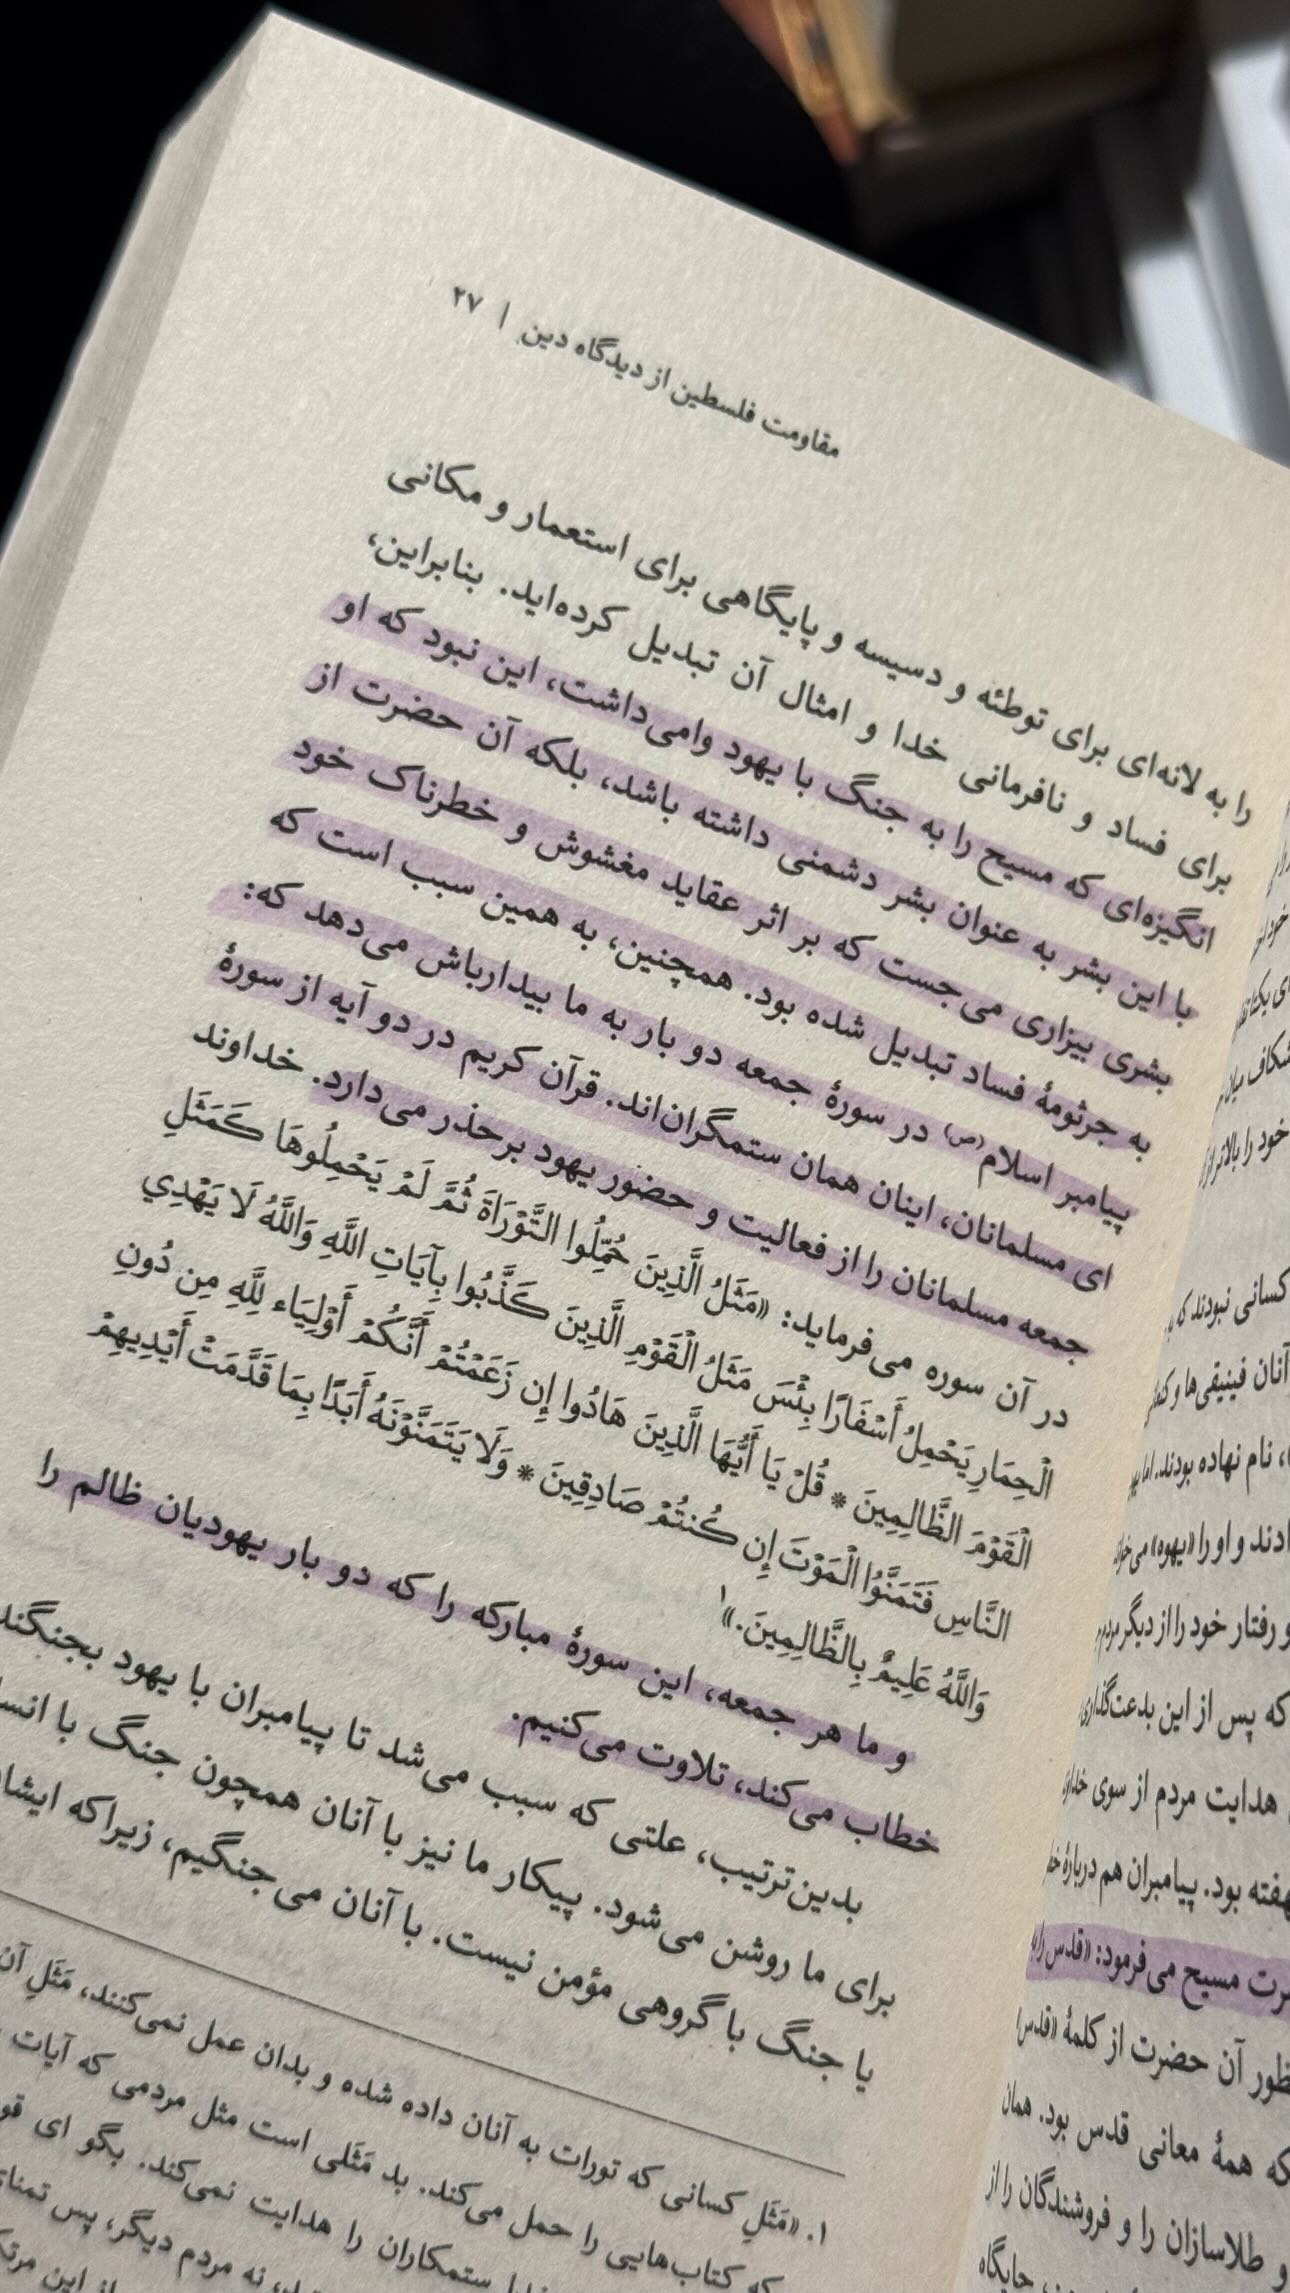 مقاومت فلسطین از دیدگاه دین | ۲۷
را به لانه‌ای برای توطئه و دسیسه و پایگاهی برای استعمار و مکانی
برای فساد و نافرمانی خدا و امثال آن تبدیل کرده‌اید. بنابراین،
انگیزه‌ای که مسیح را به جنگ با یهود وامی‌داشت، این نبود که او
با این بشر به عنوان بشر دشمنی داشته باشد، بلکه آن حضرت از
بشری بیزاری می‌جست که بر اثر عقاید مغشوش و خطرناک خود
به جرثومهٔ فساد تبدیل شده بود. همچنین، به همین سبب است که
پیامبر اسلام(ص) در سورهٔ جمعه دو بار به ما بیدارباش می‌دهد که:
ای مسلمانان، اینان همان ستمگران‌اند. قرآن کریم در دو آیه از سورهٔ
جمعه مسلمانان را از فعالیت و حضور یهود برحذر می‌دارد. خداوند
در آن سوره می‌فرماید: «مَثَلُ الَّذِينَ حُمِّلُوا التَّوْرَاةَ ثُمَّ لَمْ يَحْمِلُوهَا كَمَثَلِ
الْحِمَارِ يَحْمِلُ أَسْفَارًا بِئْسَ مَثَلُ الْقَوْمِ الَّذِينَ كَذَّبُوا بِآيَاتِ اللَّهِ وَاللَّهُ لَا يَهْدِي
الْقَوْمَ الظَّالِمِينَ * قُلْ يَا أَيُّهَا الَّذِينَ هَادُوا إِن زَعَمْتُمْ أَنَّكُمْ أَوْلِيَاء لِلَّهِ مِن دُونِ
النَّاسِ فَتَمَنَّوُا الْمَوْتَ إِن كُنتُمْ صَادِقِينَ * وَلَا يَتَمَنَّوْنَهُ أَبَدًا بِمَا قَدَّمَتْ أَيْدِيهِمْ
وَاللَّهُ عَلِيمٌ بِالظَّالِمِينَ.»۱
و ما هر جمعه، این سورهٔ مبارکه را که دو بار یهودیان ظالم را
خطاب می‌کند، تلاوت می‌کنیم.
بدین‌ترتیب، علتی که سبب می‌شد تا پیامبران با یهود بجنگند
برای ما روشن می‌شود. پیکار ما نیز با آنان همچون جنگ با
یا جنگ با گروهی مؤمن نیست. با آنان می‌جنگیم، زیراکه
۱. «مَثَلِ کسانی که تورات به آنان داده شده و بدان عمل نمی‌کنند، مَثَلِ آن
که کتاب‌هایی را حمل می‌کند. بد مَثَلی است مثل مردمی که آیات
ستمکاران را هدایت نمی‌کند. بگو ای
نه مردم دیگر، پس
از این
کسانی نبودند که
آنان فینیقی‌ها و
نام نهاده بودند. اما
و او را «یهوه»
و رفتار خود را از دیگر
که پس از این
هدایت مردم از سوی
بود. پیامبران هم دربارهٔ
مسیح می‌فرمود: «قدس را
آن حضرت از کلمهٔ «قدس»
که همهٔ معانی قدس بود. همان
و طلاسازان را و فروشندگان را از
جایگاه